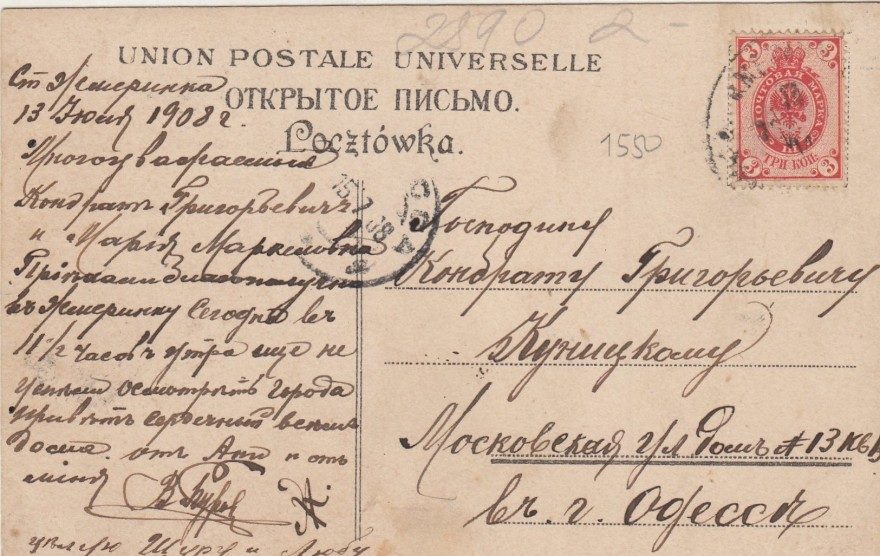 2890 2-
UNION POSTALE UNIVERSELLE
ОТКРЫТОЕ ПИСЬМО.
Pocztówka.
1550
3 3
ПОЧТОВАЯ МАРКА
3 ТРИ КОП. 3
Ст Жмеринка
13 Июня 1908 г.
Многоуважаемые
Кондратъ Григорьевичъ
и Марья Маркеловна
Пріехали благополучно
въ Жмеринку Сегодня въ
11 1/2 часовъ утра еще не
успели осмотреть города
приветъ сердечный всемъ
отъ Ани и отъ
меня
Господину
Кондрату Григорьевичу
Куницкому
Московская ул домъ № 13 кв
въ г. Одессе
целую Шуру и Любу